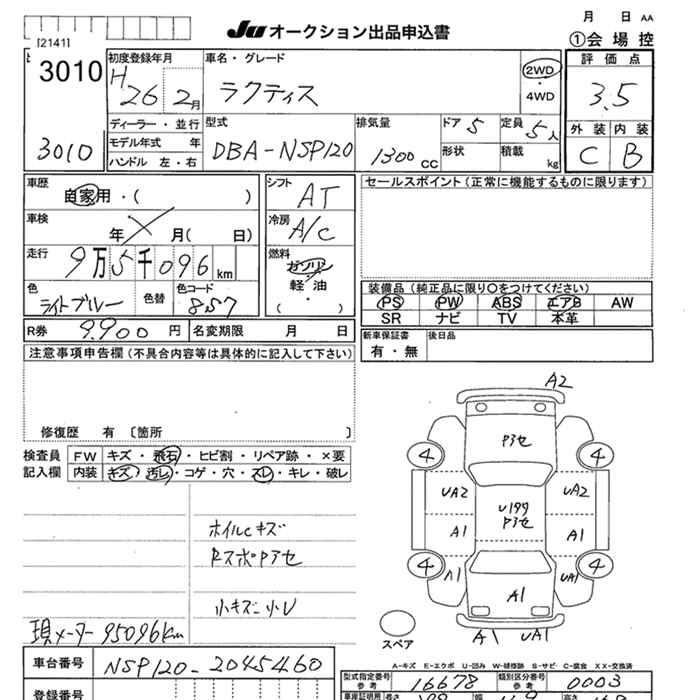 月 日 AA
[2141]
Ju オークション出品申込書
①会場控
3010
初度登録年月
H 26 2月
車名・グレード
ラクティス
2WD
・
4WD
評価点
3.5
3010
ディーラー・並行
モデル年式 年
ハンドル 左・右
型式
DBA-NSP120
排気量
1300 CC
ドア 5
定員 5人
形状
積載 kg
外装 内装
C B
車歴
自家用・( )
シフト AT
セールスポイント(正常に機能するものに限ります)
車検
年 月( 日)
冷房 A/C
走行
9万5千096km
燃料
ガソリン
軽油
( ・ )
色
ライトブルー
色替
色コード
8S7
装備品(純正品に限り○をつけてください)
PS PW ABS エアB AW
SR ナビ TV 本革
R券 9,900 円
名変期限 月 日
新車保証書
有・無
後日品
注意事項申告欄(不具合内容等は具体的に記入して下さい)
修復歴 有 〔箇所 〕
検査員
記入欄
FW キズ・飛石・ヒビ割・リペア跡・×要
内装 キズ・汚レ・コゲ・穴・スレ・キレ・破レ
A2
Pアセ
4 4
UA2 UA2
U199
Pアセ
A1 A1
4 4
A1 UA1
A1
A1 UA1
スペア
ホイルcキズ
RスポPアセ
小キズ-小U
現メーター95096km
A-キズ E-エクボ U-凹み W-補修跡 S-サビ C-腐食 XX-交換済
車台番号 NSP120-2045460
型式指定番号 16678
類別区分番号 0003
登録番号